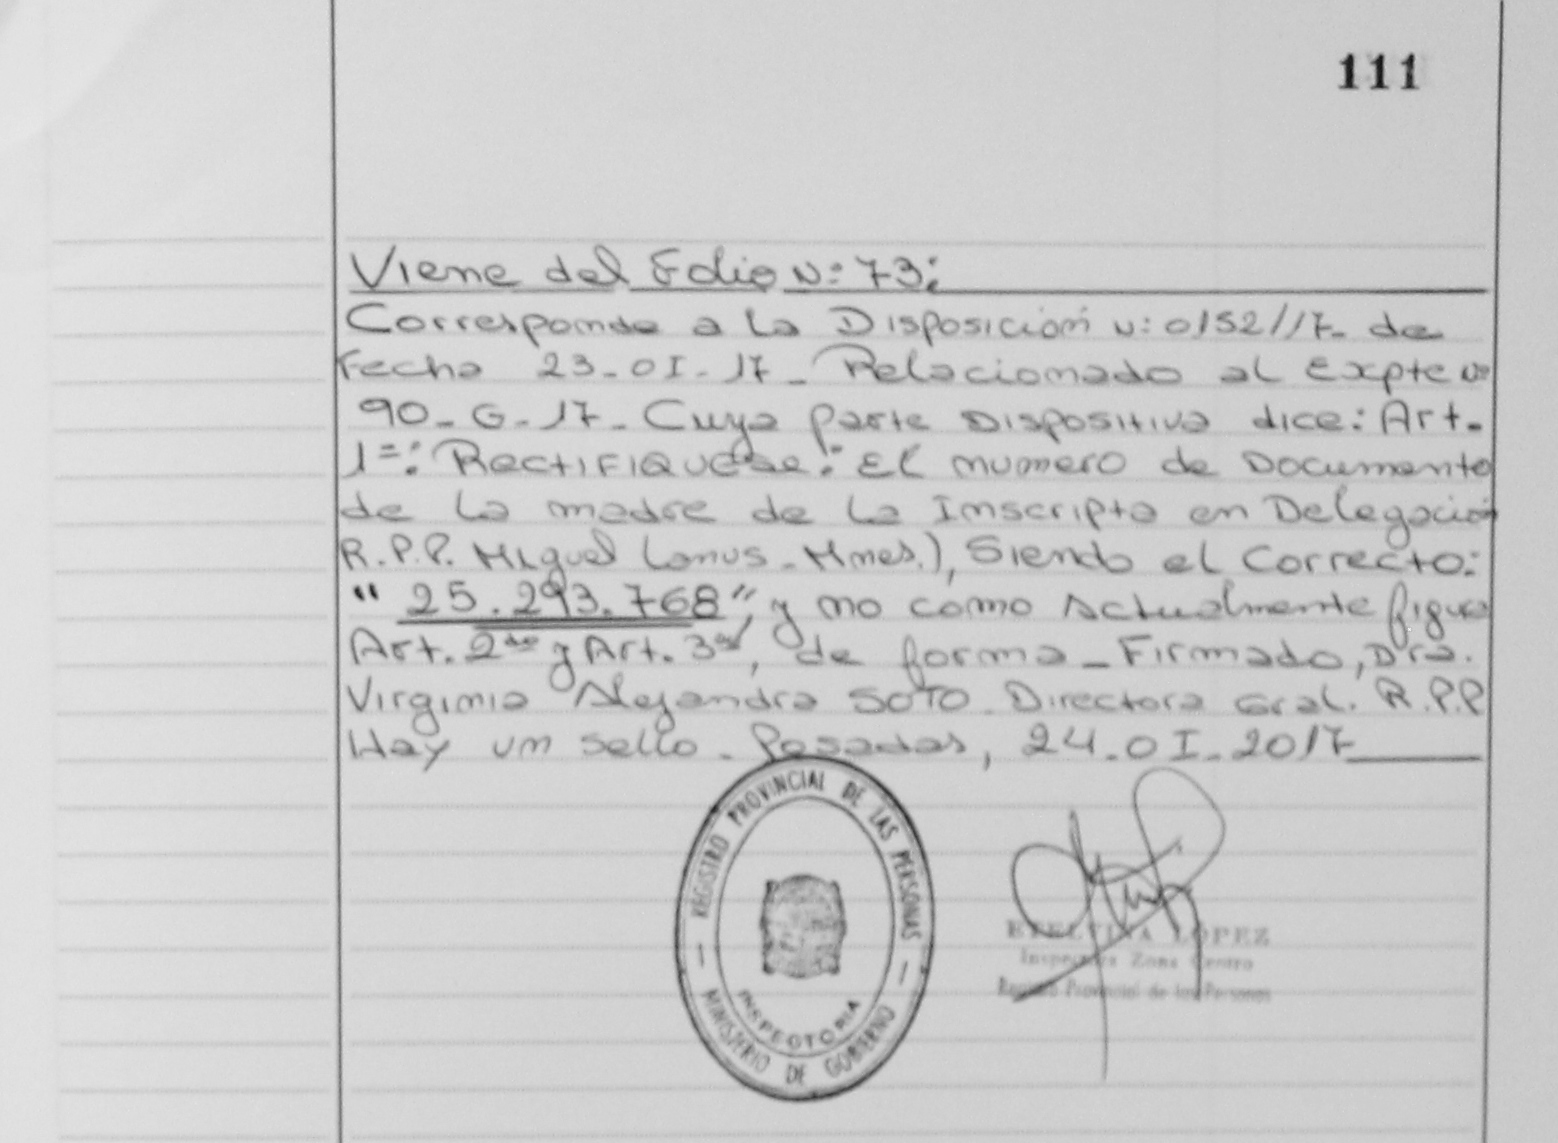 111
Viene del Folio N: 73:
Corresponde a la Disposición N: 0152//17- de
Fecha 23-01-17- Relacionado al Expte Nº
90-G-17- Cuya parte Dispositiva dice: Art.
1=: RECTIFIQUESE: El numero de Documento
de la madre de la Inscripta en Delegación
R.P.P. Miguel Lanus-Mnes.), Siendo el Correcto:
"25.293.768", y no como Actualmente figura
Art. 2do y Art. 3ro, de forma-Firmado, Dra.
Virginia Alejandra SOTO. Directora Gral. R.P.P
Hay un sello- Posadas, 24-01-2017
REGISTRO PROVINCIAL DE LAS PERSONAS
INSPECTORIA
MINISTERIO DE GOBIERNO
ETELVINA LOPEZ
Inspectora Zona Centro
Registro Provincial de las Personas